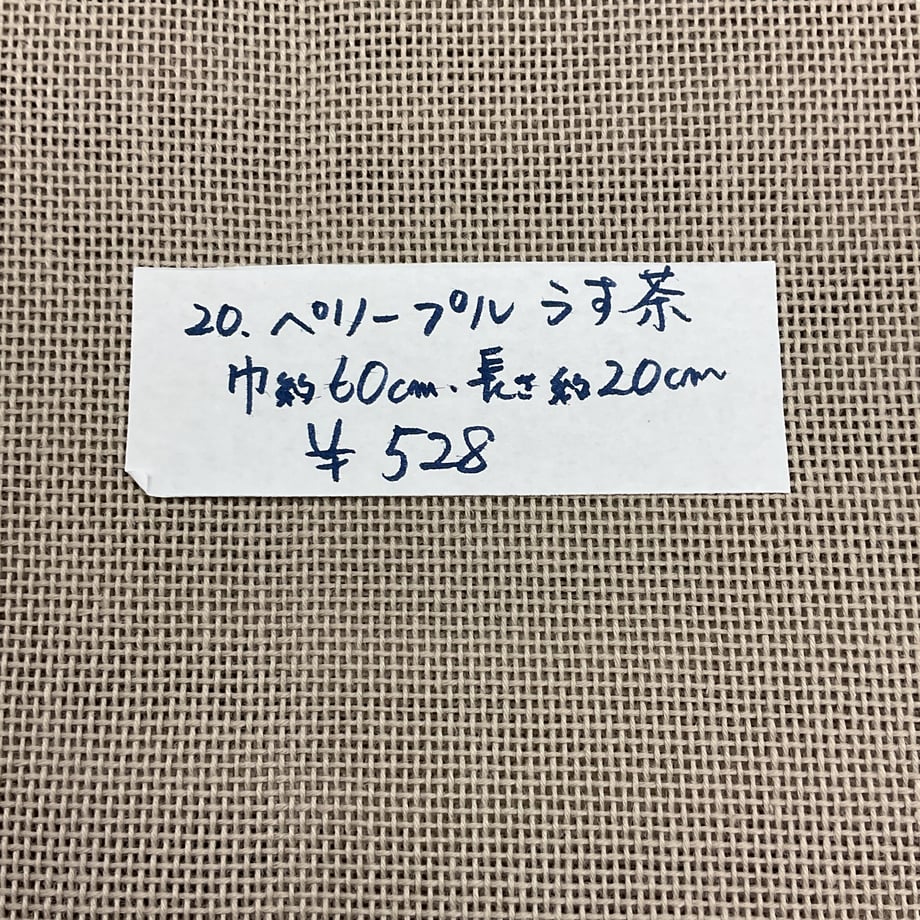 20. ペリープル うす茶
巾約60cm・長さ約20cm
¥ 528